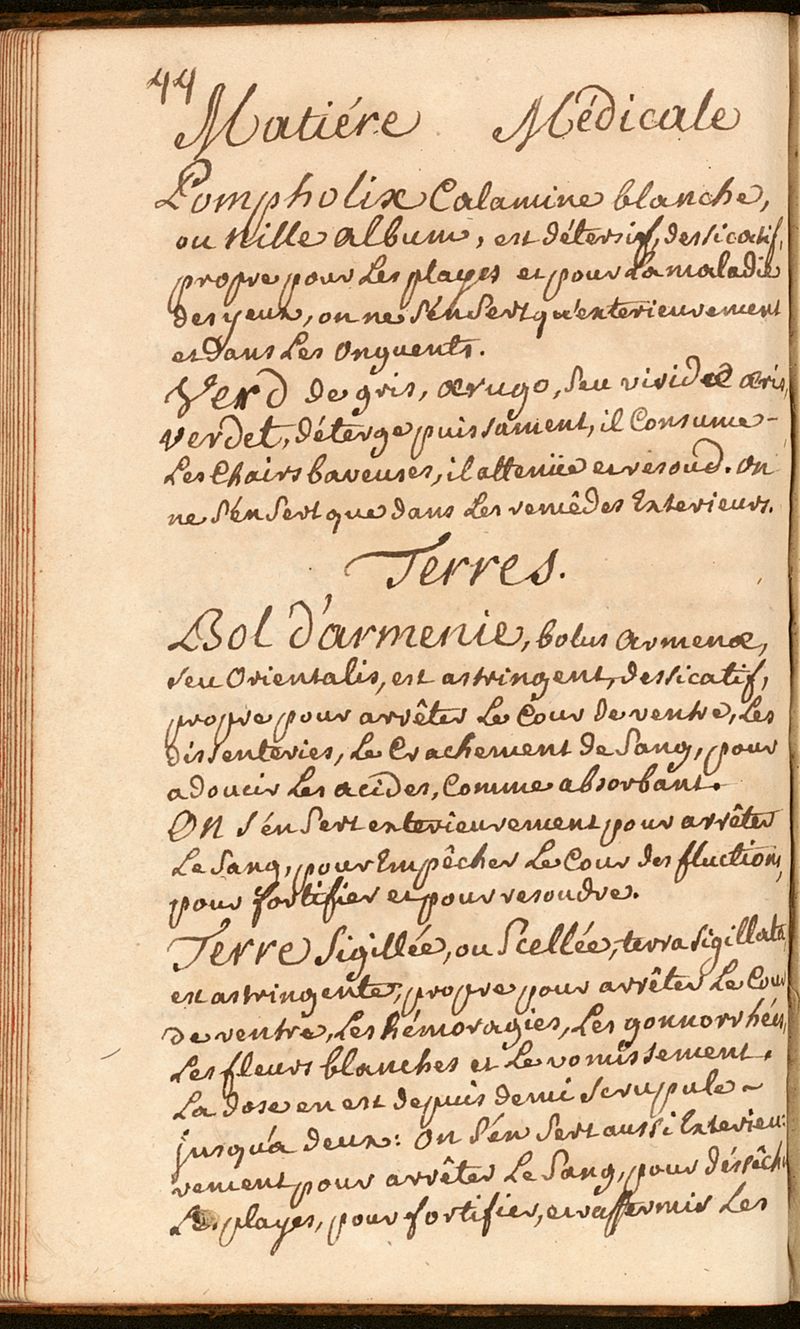 44
Matiére Médicale
Pompholix Calamine blanche,
ou nille album, est détersif, dessicatif,
propre pour Les playes et pour La maladie
des yeux, on ne s'én sert qu'exterieurement
et dans Les onguents.
Verd de gris, ærugo, seu viride æris,
verdet, déterge puissament, il Consume
Les Chairs baveuses, il attenüe et resoud. on
ne s'én sert que dans Les remêdes Exterieurs.
Terres.
Bol d'armenie, bolus armenæ,
seu Orientalis, est astringent, dessicatif,
propre pour arrêter Le Cour de ventre, Les
dissenteries, Le Crachement de Sang, pour
adoucir Les acides, Comme absorbant.
On s'én sert exterieurement pour arrêter
Le Sang, pour Empêcher Le Cour des fluctions,
pour fortifier et pour resoudre.
Terre Sigillée, ou Scellée, terra sigillata
est astringente, propre pour arrêter Le Cour
de ventre, Les hémoragies, Les gonnorrhées,
Les fleurs blanches et Le vomissement.
La dose en est depuis demi scrupule ~
jusqu'a deux: On s'én sert aussi Exterieu:
rement pour arrêter Le Sang, pour déssêcher
Les playes, pour fortifier, et raffermir Les